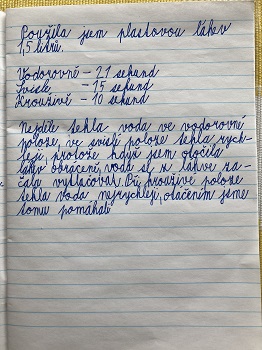 Použila jsem plastovou láhev
1,5 litrů.
Vodorovně - 21 sekund
Svisle - 15 sekund
Krouživě - 10 sekund
Nejdéle tekla voda ve vodorovné
poloze, ve svislé poloze tekla rych-
leji, protože když jsem otočila
láhev obráceně, voda se z láhve za-
čala vytlačovat. Při krouživé poloze
tekla voda nejrychleji, otáčením jsme
tomu pomáhali